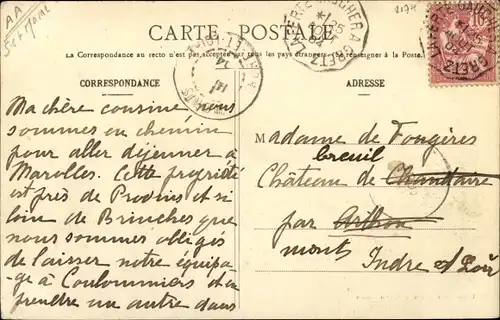 AA
5et Marne
2174
CARTE POSTALE
La Correspondance au recto n'est pas acceptée par tous les pays étrangers (Se renseigner à la Poste).
CORRESPONDANCE
Ma chère cousine nous
sommes en chemin
pour aller déjeuner à
Marolles. Cette propriété
est près de Provins et si
loin de Brinches que
nous sommes obligés
de laisser notre équipa
-ge à Coulommiers et en
prendre un autre dans
ADRESSE
Madame de Fougères
breuil
Château de
par
mont Indre et Loir